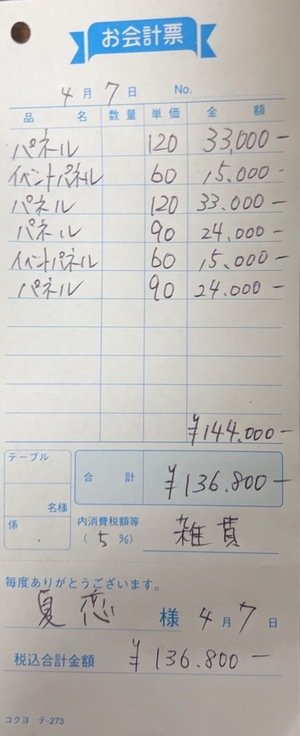 お会計票
4月7日 No.
品名 数量 単価 金額
パネル 120 33,000-
イベントパネル 60 15,000-
パネル 120 33.000-
パネル 90 24.000-
イベントパネル 60 15.000-
パネル 90 24.000-
¥144.000-
テーブル
名様
係
合計 ¥136.800-
内消費税額等
(5%) 雑貨
毎度ありがとうございます。
夏恋 様 4月7日
税込合計金額 ¥136.800-
コクヨ テ-273